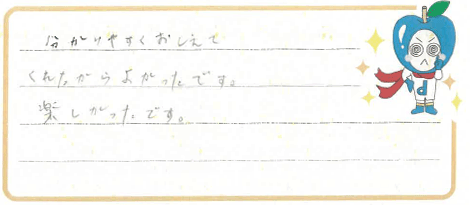 分かりやすくおしえて
くれたからよかったです。
楽しかったです。